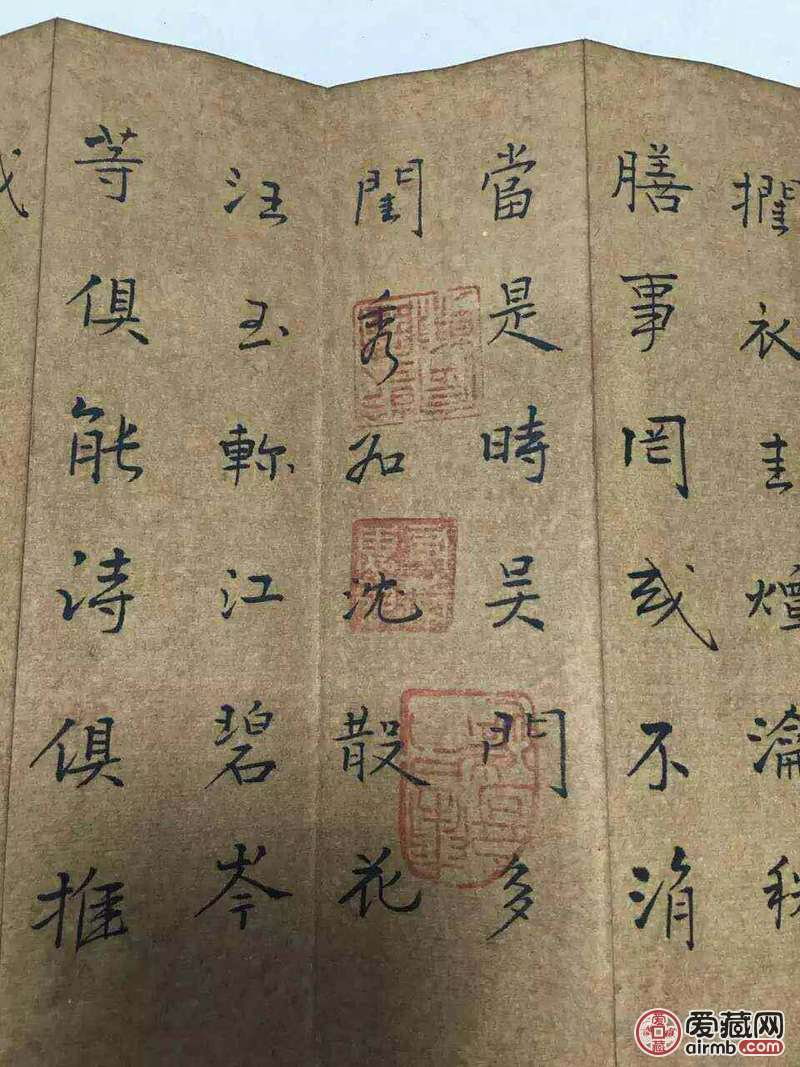 擢衣圭爚瀹
膳事罔或不涓
當是時吳門多
閨秀如沈散花
汪玉軫江碧岑
等俱能詩俱推
或
爱藏网
airmb.com